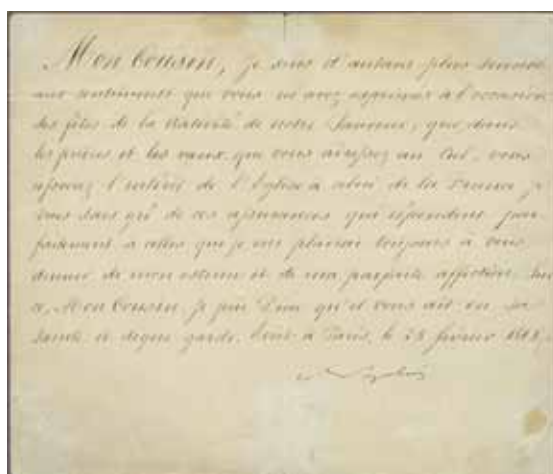 Mon Cousin, je suis d'autant plus sensible
aux sentiments que vous m'avez exprimés à l'occasion
des fêtes de la nativité de notre Sauveur, que dans
les prières et les vœux que vous adressez au Ciel, vous
l'intérêt de l'Église à celui de la France je
vous sais gré de ces assurances qui répondent par-
faitement à celles que je me plairai toujours à vous
donner de mon estime et de ma parfaite affection. Sur
Mon Cousin je prie Dieu qu'il vous ait en sa
sainte et digne garde. Écrit à Paris, le 28 février